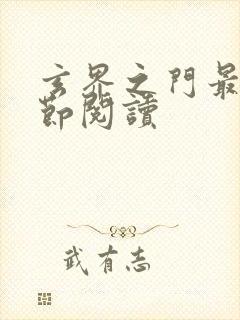 玄界之門最
節閱讀
武有志